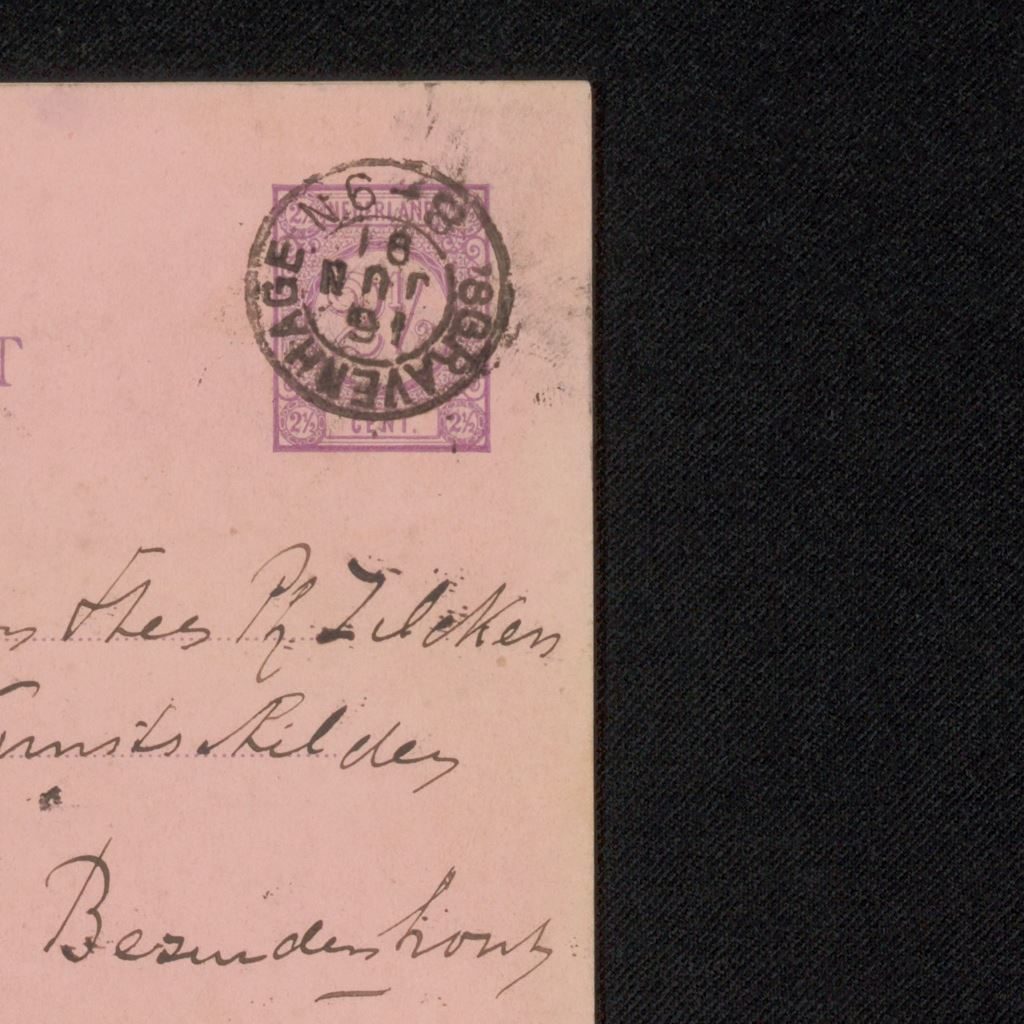 NEDERLAND
2½ CENT. 2½
'SGRAVENHAGE
16
JUN
81
8-9N
Heer Ph Zilcken
Kunstschilder
Bezuidenhout